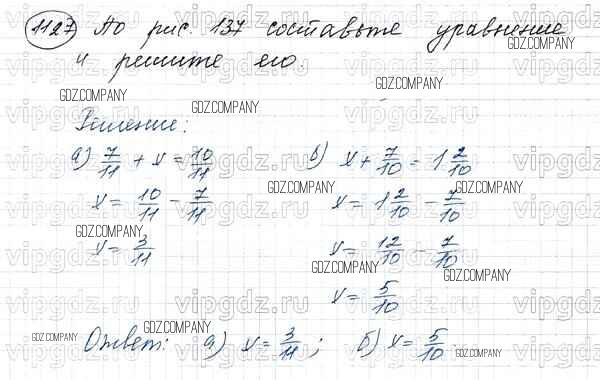 1127 По рис. 137 составьте уравнение
и решите его.
Решение:
а) 7/11 + x = 10/11
x = 10/11 - 7/11
x = 3/11
б) x + 7/10 = 1 2/10
x = 1 2/10 - 7/10
x = 12/10 - 7/10
x = 5/10
Ответ: а) x = 3/11 ; б) x = 5/10
GDZ.COMPANY
vipgdz.ru